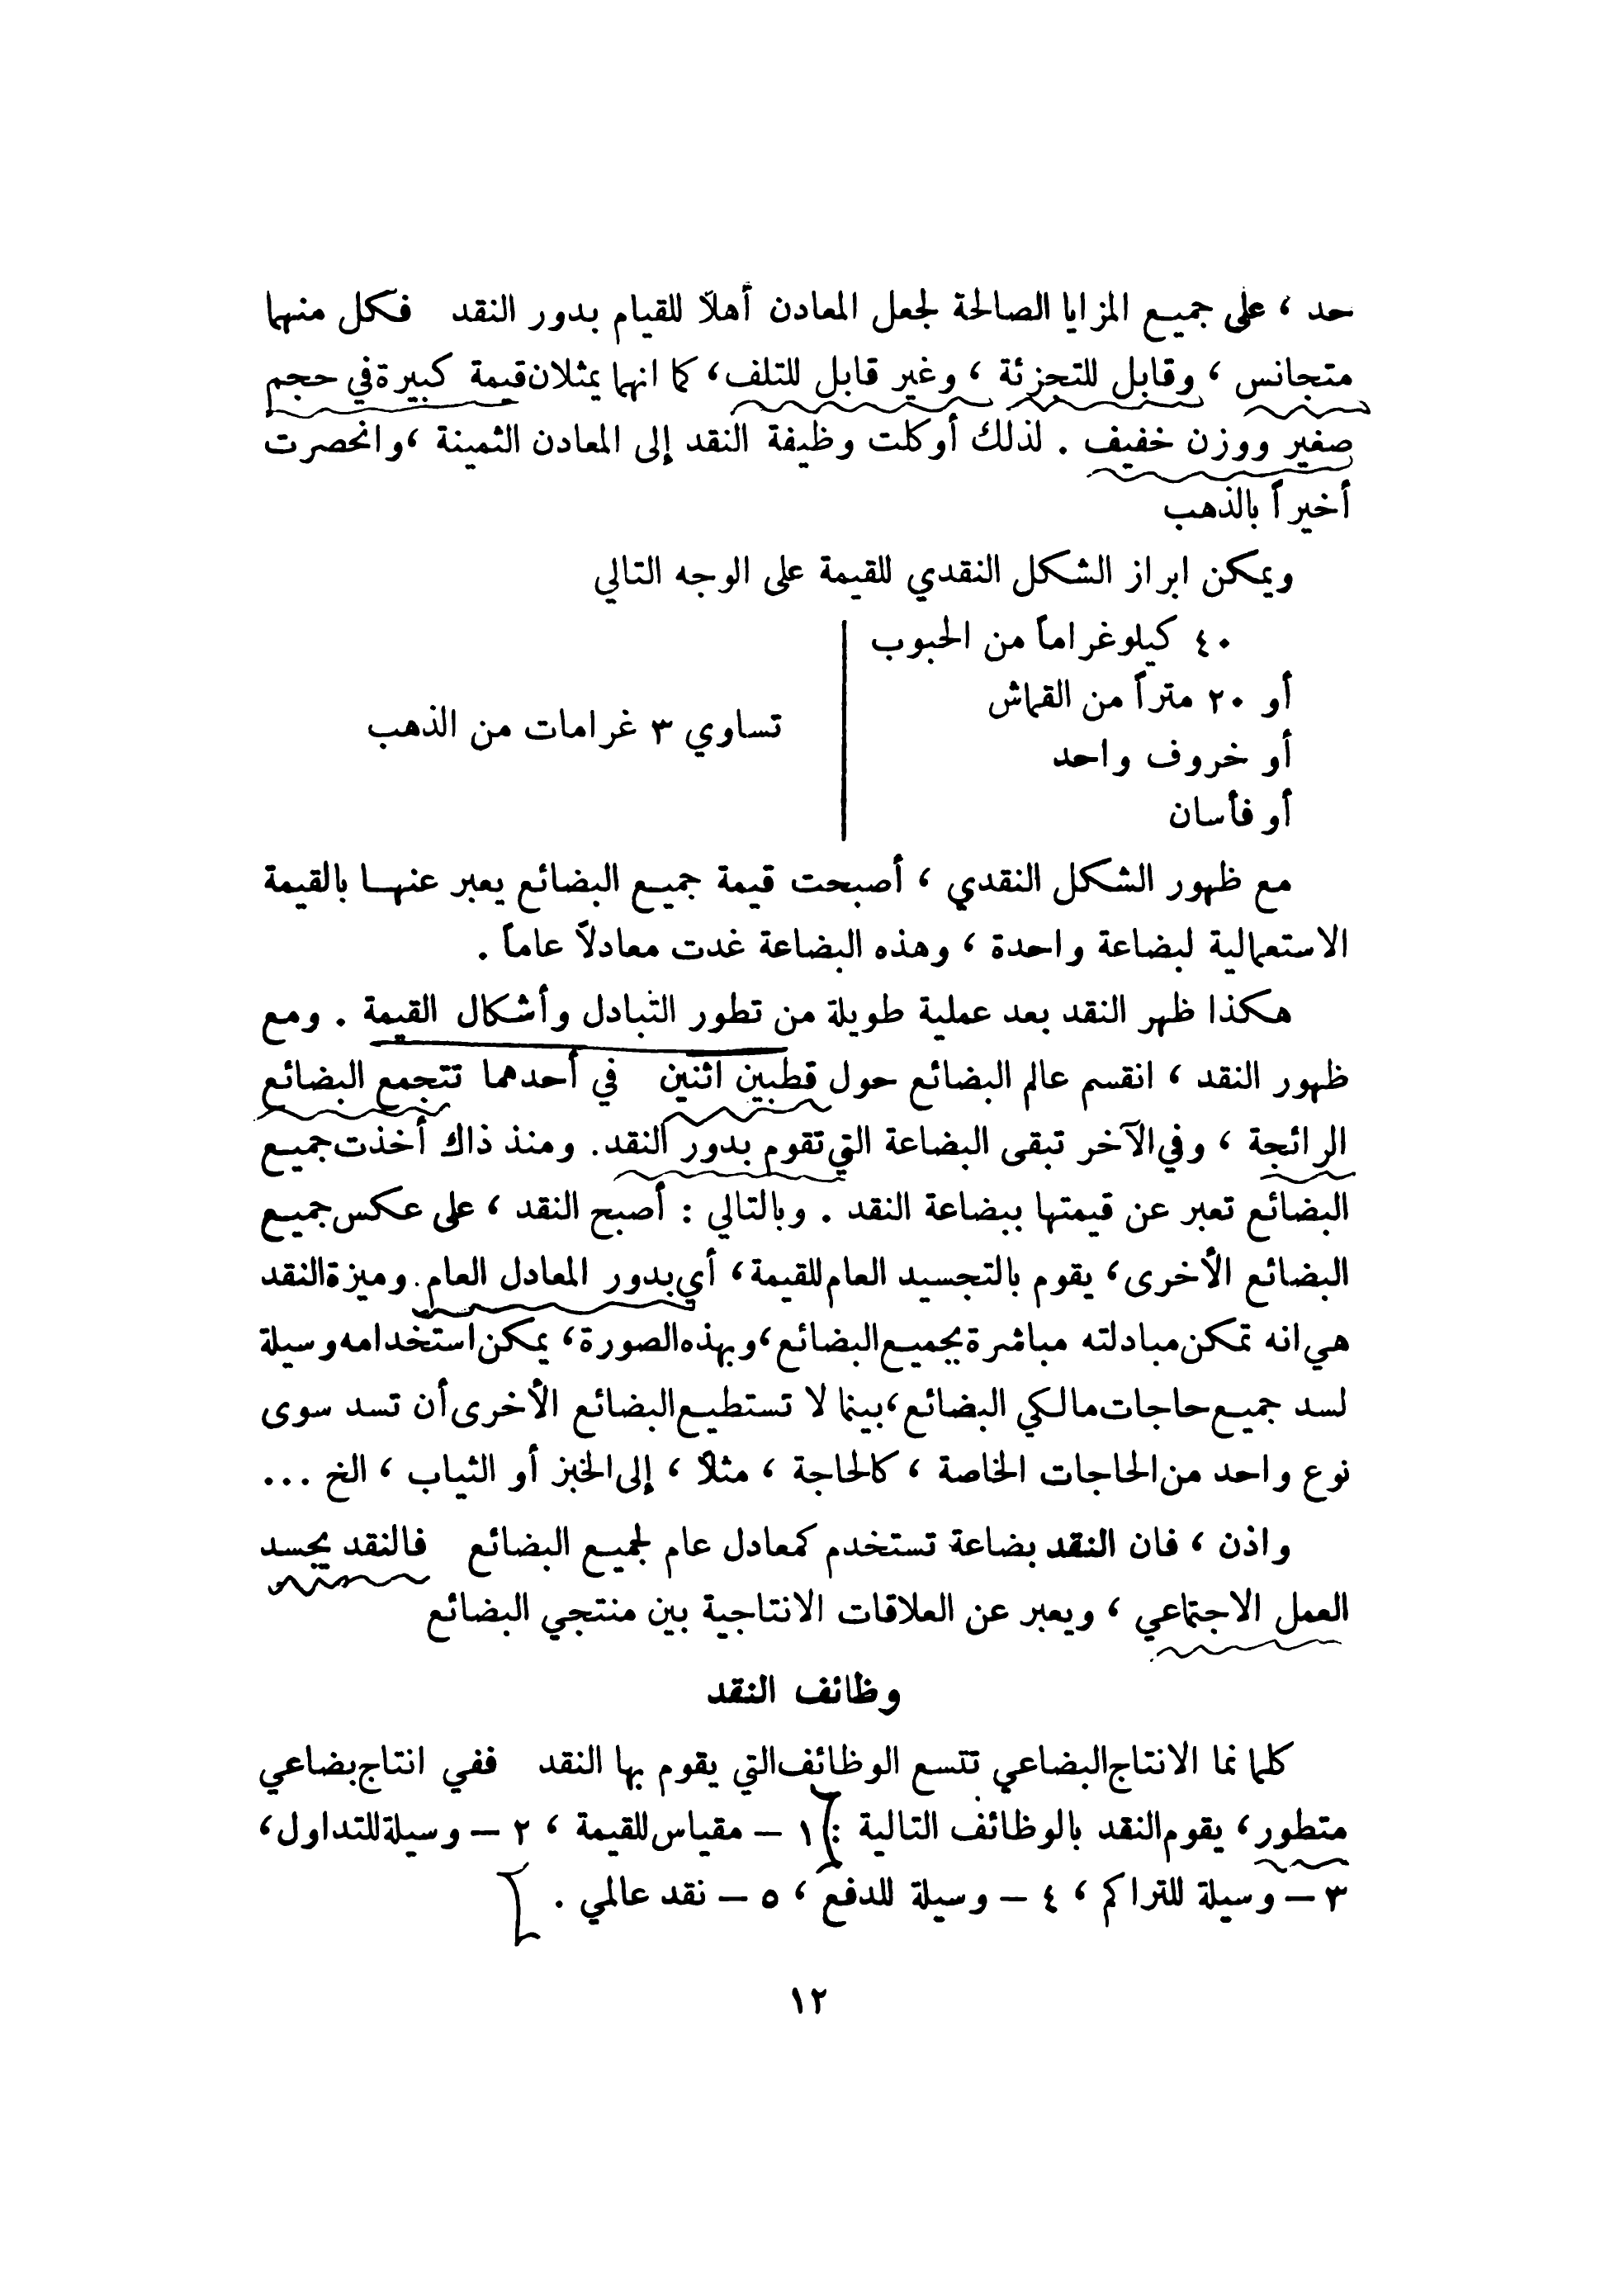 حد ، على جميع المزايا الصالحة لجعل المعادن أهلاً للقيام بدور النقد فكل منهما
متجانس ، وقابل للتجزئة ، وغير قابل للتلف ، كما انهما يمثلان قيمة كبيرة في حجم
صغير ووزن خفيف . لذلك أوكلت وظيفة النقد إلى المعادن الثمينة ، وانحصرت
أخيراً بالذهب
ويمكن ابراز الشكل النقدي للقيمة على الوجه التالي
٤٠ كيلوغراماً من الحبوب
أو ٢٠ متراً من القماش
تساوي ٣ غرامات من الذهب
أو خروف واحد
أو فأسان
مع ظهور الشكل النقدي ، أصبحت قيمة جميع البضائع يعبر عنها بالقيمة
الاستعمالية لبضاعة واحدة ، وهذه البضاعة غدت معادلاً عاماً .
هكذا ظهر النقد بعد عملية طويلة من تطور التبادل وأشكال القيمة . ومع
ظهور النقد ، انقسم عالم البضائع حول قطبين اثنين في أحدهما تتجمع البضائع
الرائجة ، وفي الآخر تبقى البضاعة التي تقوم بدور النقد . ومنذ ذاك أخذت جميع
البضائع تعبر عن قيمتها ببضاعة النقد . وبالتالي : أصبح النقد ، على عكس جميع
البضائع الأخرى ، يقوم بالتجسيد العام للقيمة ، أي بدور المعادل العام . وميزة النقد
هي انه تمكن مبادلته مباشرة بجميع البضائع ، وبهذه الصورة ، يمكن استخدامه وسيلة
لسد جميع حاجات مالكي البضائع ، بينما لا تستطيع البضائع الأخرى أن تسد سوى
نوع واحد من الحاجات الخاصة ، كالحاجة ، مثلاً ، إلى الخبز أو الثياب ، الخ ...
واذن ، فان النقد بضاعة تستخدم كمعادل عام لجميع البضائع فالنقد يجسد
العمل الاجتماعي ، ويعبر عن العلاقات الانتاجية بين منتجي البضائع
وظائف النقد
كلما نما الانتاج البضاعي تتسع الوظائف التي يقوم بها النقد ففي انتاج بضاعي
متطور ، يقوم النقد بالوظائف التالية : ١ – مقياس للقيمة ، ٢ – وسيلة للتداول ،
٣ – وسيلة للتراكم ، ٤ – وسيلة للدفع ، ٥ – نقد عالمي .
١٢